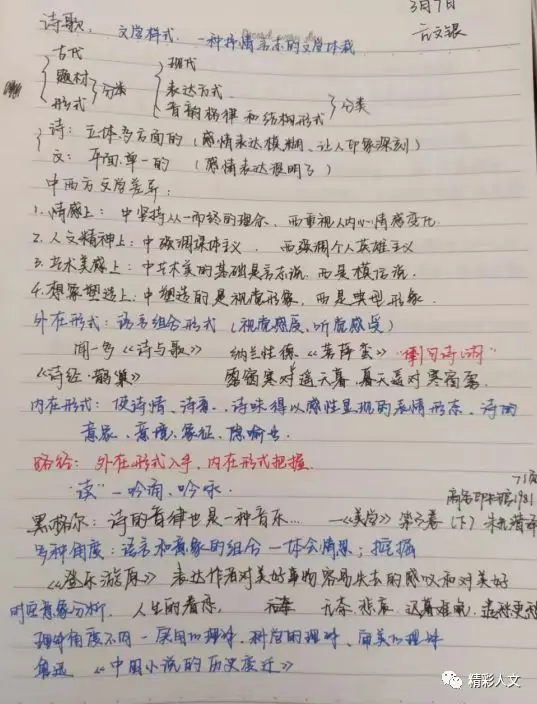 3月7日
诗歌：文学样式．一种抒情言志的文学体裁
古代 现代
题材 分类 表达方式 分类
形式 音韵格律和结构形式
诗：立体多方面的（感情表达模糊、让人印象深刻）
文：平面单一的（感情表达很明了）
中西方文学差异：
1.情感上：中坚持从一而终的理念．西重视人内心情感变化．
2.人文精神上：中强调集体主义．西强调个人英雄主义
3.艺术美感上：中艺术美的基础是言志说．西是模仿说．
4.想象塑造上：中塑造的是视觉形象，西是典型形象．
外在形式：语言组合形式（视觉感度、听觉感受）
闻一多《诗与歌》 纳兰性德《菩萨蛮》
《诗经·鹊巢》 雾窗寒对遥天暮，暮天遥对寒窗雾．
内在形式：使诗情、诗意、诗味得以感性显现的表情形态．诗的
意象、意境、象征、隐喻
路径：外在形式入手，内在形式把握．
"读"－吟诵、吟咏．
商务印书馆1981
黑格尔：诗的音律也是一种音乐…… —《美学》第三卷（下）
多种角度：语言和意象的组合－体会情思；挖掘
《登乐游原》表达作者对美好事物容易失去的感叹和对美好
时空意象分析．人生的眷恋．
理解角度不同－
鲁迅《中国小说的历史变迁》
精彩人文